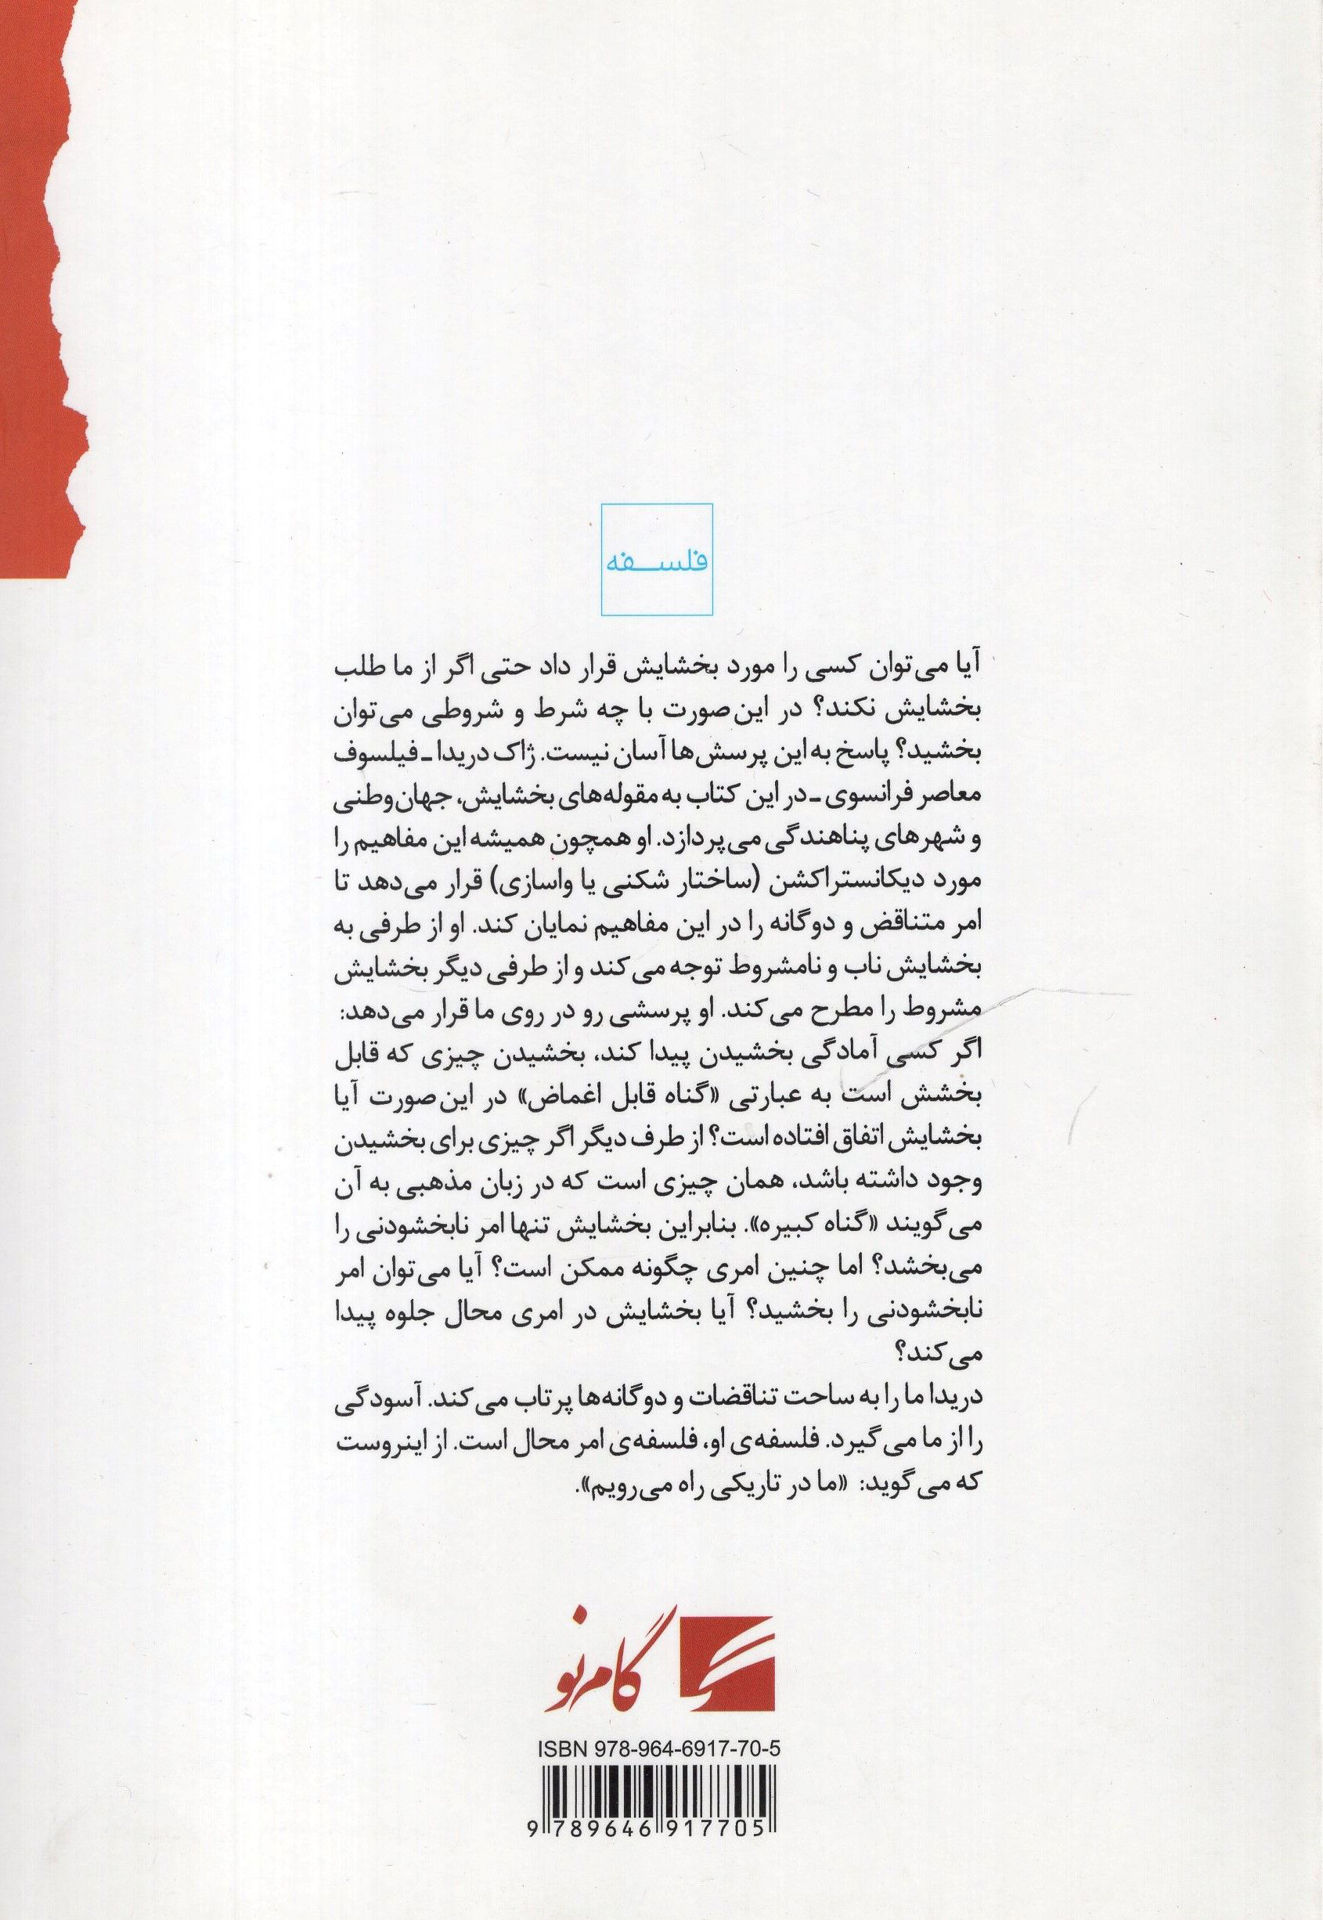 فلسفه
آیا می‌توان کسی را مورد بخشایش قرار داد حتی اگر از ما طلب
بخشایش نکند؟ در این‌صورت با چه شرط و شروطی می‌توان
بخشید؟ پاسخ به این پرسش‌ها آسان نیست. ژاک دریدا ـ فیلسوف
معاصر فرانسوی ـ در این کتاب به مقوله‌های بخشایش، جهان‌وطنی
و شهرهای پناهندگی می‌پردازد. او همچون همیشه این مفاهیم را
مورد دیکانستراکشن (ساختار شکنی یا واسازی) قرار می‌دهد تا
امر متناقض و دوگانه را در این مفاهیم نمایان کند. او از طرفی به
بخشایش ناب و نامشروط توجه می‌کند و از طرفی دیگر بخشایش
مشروط را مطرح می‌کند. او پرسشی رو در روی ما قرار می‌دهد:
اگر کسی آمادگی بخشیدن پیدا کند، بخشیدن چیزی که قابل
بخشش است به عبارتی «گناه قابل اغماض» در این‌صورت آیا
بخشایش اتفاق افتاده است؟ از طرف دیگر اگر چیزی برای بخشیدن
وجود داشته باشد، همان چیزی است که در زبان مذهبی به آن
می‌گویند «گناه کبیره». بنابراین بخشایش تنها امر نابخشودنی را
می‌بخشد؟ اما چنین امری چگونه ممکن است؟ آیا می‌توان امر
نابخشودنی را بخشید؟ آیا بخشایش در امری محال جلوه پیدا
می‌کند؟
دریدا ما را به ساحت تناقضات و دوگانه‌ها پرتاب می‌کند. آسودگی
را از ما می‌گیرد. فلسفه‌ی او، فلسفه‌ی امر محال است. از اینروست
که می‌گوید: «ما در تاریکی راه می‌رویم».
گام نو
ISBN 978-964-6917-70-5
9 789646 917705